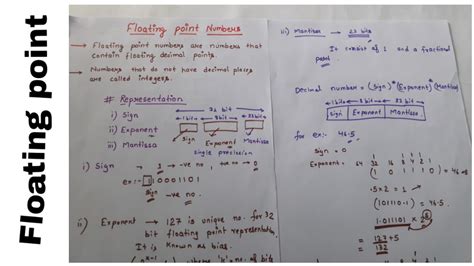 Floating point
Floating point Numbers
→ Floating point numbers are numbers that
contain floating decimal points.
→ Numbers that do not have decimal places
are called integers.
# Representation
32 bit
1 bit 8 bit 23 bit
i) Sign
ii) Exponent
iii) Mantissa
Sign Exponent Mantissa
Single precision
i) Sign → 1 → -ve no , +ve no → 0
ex:- 10001101
sign → -ve no.
ii) Exponent → 127 is unique no. for 32
bit floating point representation
It is known as bias.
iii) Mantissa → 23 bits
It consist of 1 and a fractional
part.
Decimal number = (Sign)*(Exponent)*(Mantissa)
1 bit 8 bits 23 bits
Sign Exponent Mantissa
for ex:- 46.5
Sign = 0
Exponent =
64 32 16 8 4 2 1
.5 x 2 = 1
(101110.1)
1.011101 x 2^5
= 127+5
= 132